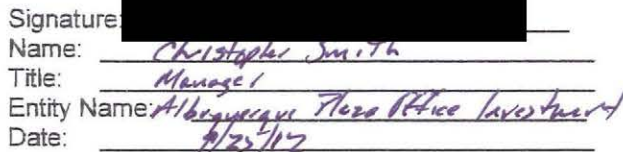 Signature:
Name: Christopher Smith
Title: Manager
Entity Name: Albuquerque Plaza Office Investment
Date: